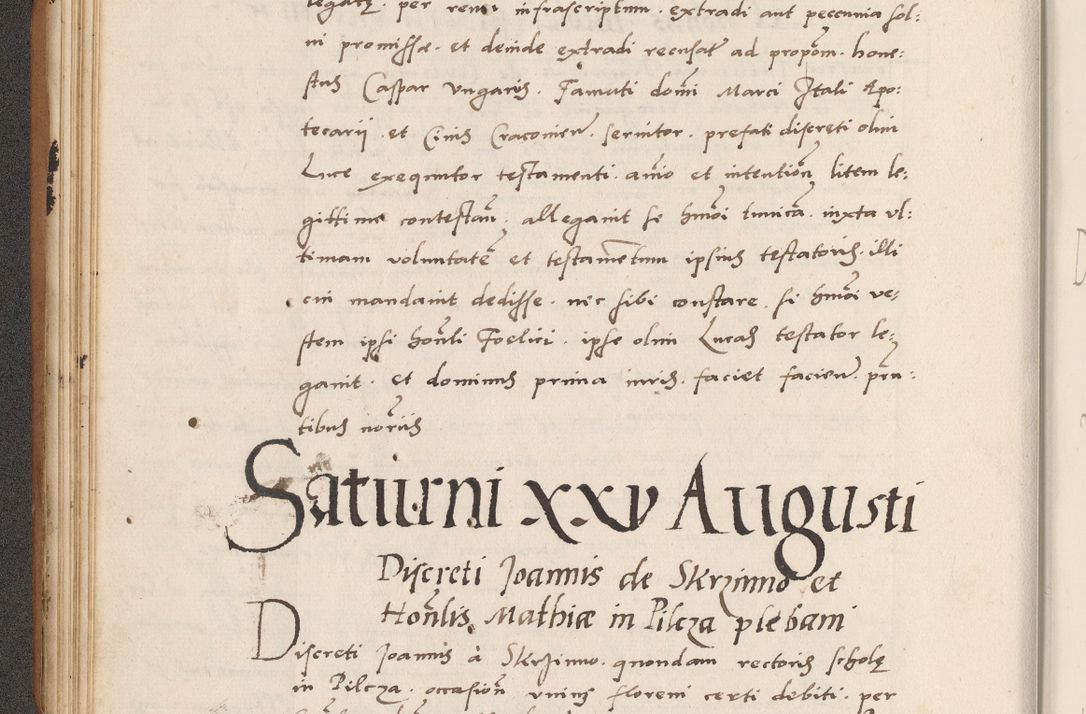 legatę. per renu infrascriptum. extradi aut peccunia sol:
ni promissæ. et deinde extradi recusat̃ ad propõm. hone:
stus Caspar Vngarus. Famuli dom̃i Marci Itali Apo:
tecarii. et Ciuis Cracouien̄. seruitor. prefati discreti olim
Luce exequutor testamenti. anĩo et intentiõn litem le:
gittime contestan̄. allegauit se hmõi tunicã. iuxta vl:
timam voluntatẽ et testamẽtum ipsius testatoris. illi
cui mandauit dedisse. nec sibi constare. si hmõi ve:
stem ipsi hon̄li Foelici. ipse olim Lucas testator le:
gauit. et dominus prima iuris. faciet facien̄. pñ:
tibus nor̃iis
Saturni xxv Augusti
Discreti Joannis de Skrzinno et
Hon̄lis Mathiæ in Pilcza plebani
Discreti Joannis à Skrzinno. quondam rectoris scholę
in Pilcza. occasiõn vnius floreni certi debiti. per